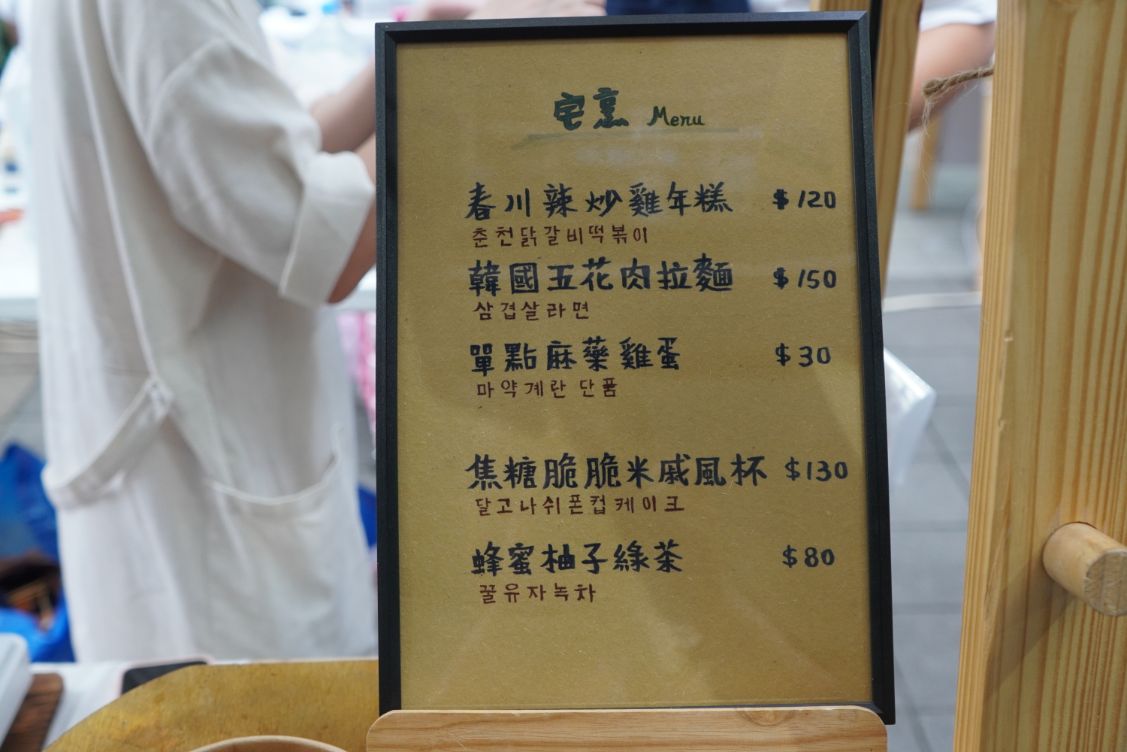 宅烹 Menu
春川辣炒雞年糕 $120
춘천닭갈비떡볶이
韓國五花肉拉麵 $150
삼겹살라면
單點麻藥雞蛋 $30
마약계란 단품
焦糖脆脆米戚風杯 $130
달고나쉬폰컵케이크
蜂蜜柚子綠茶 $80
꿀유자녹차